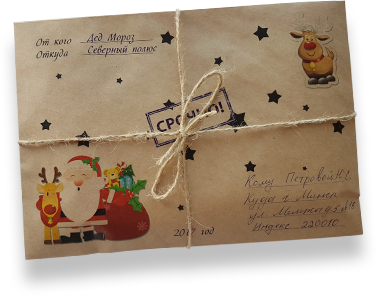 От кого Дед Мороз
Откуда Северный полюс
СРОЧНО!
Кому Петровой Н.С.
Куда г. Минск
ул.
Индекс 220010
2017 год